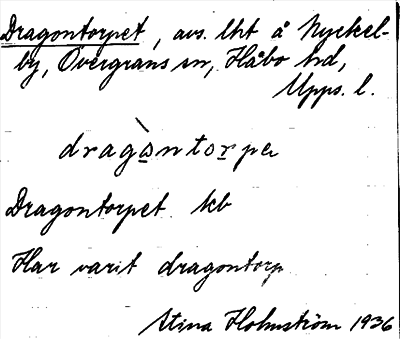 Dragontorpet, avs. lht å Nyckel-
by, Övergrans sn, Håbo hd,
Upps. l.
dragòntorpe
Dragontorpet kb
Har varit dragontorp
Stina Holmström 1936